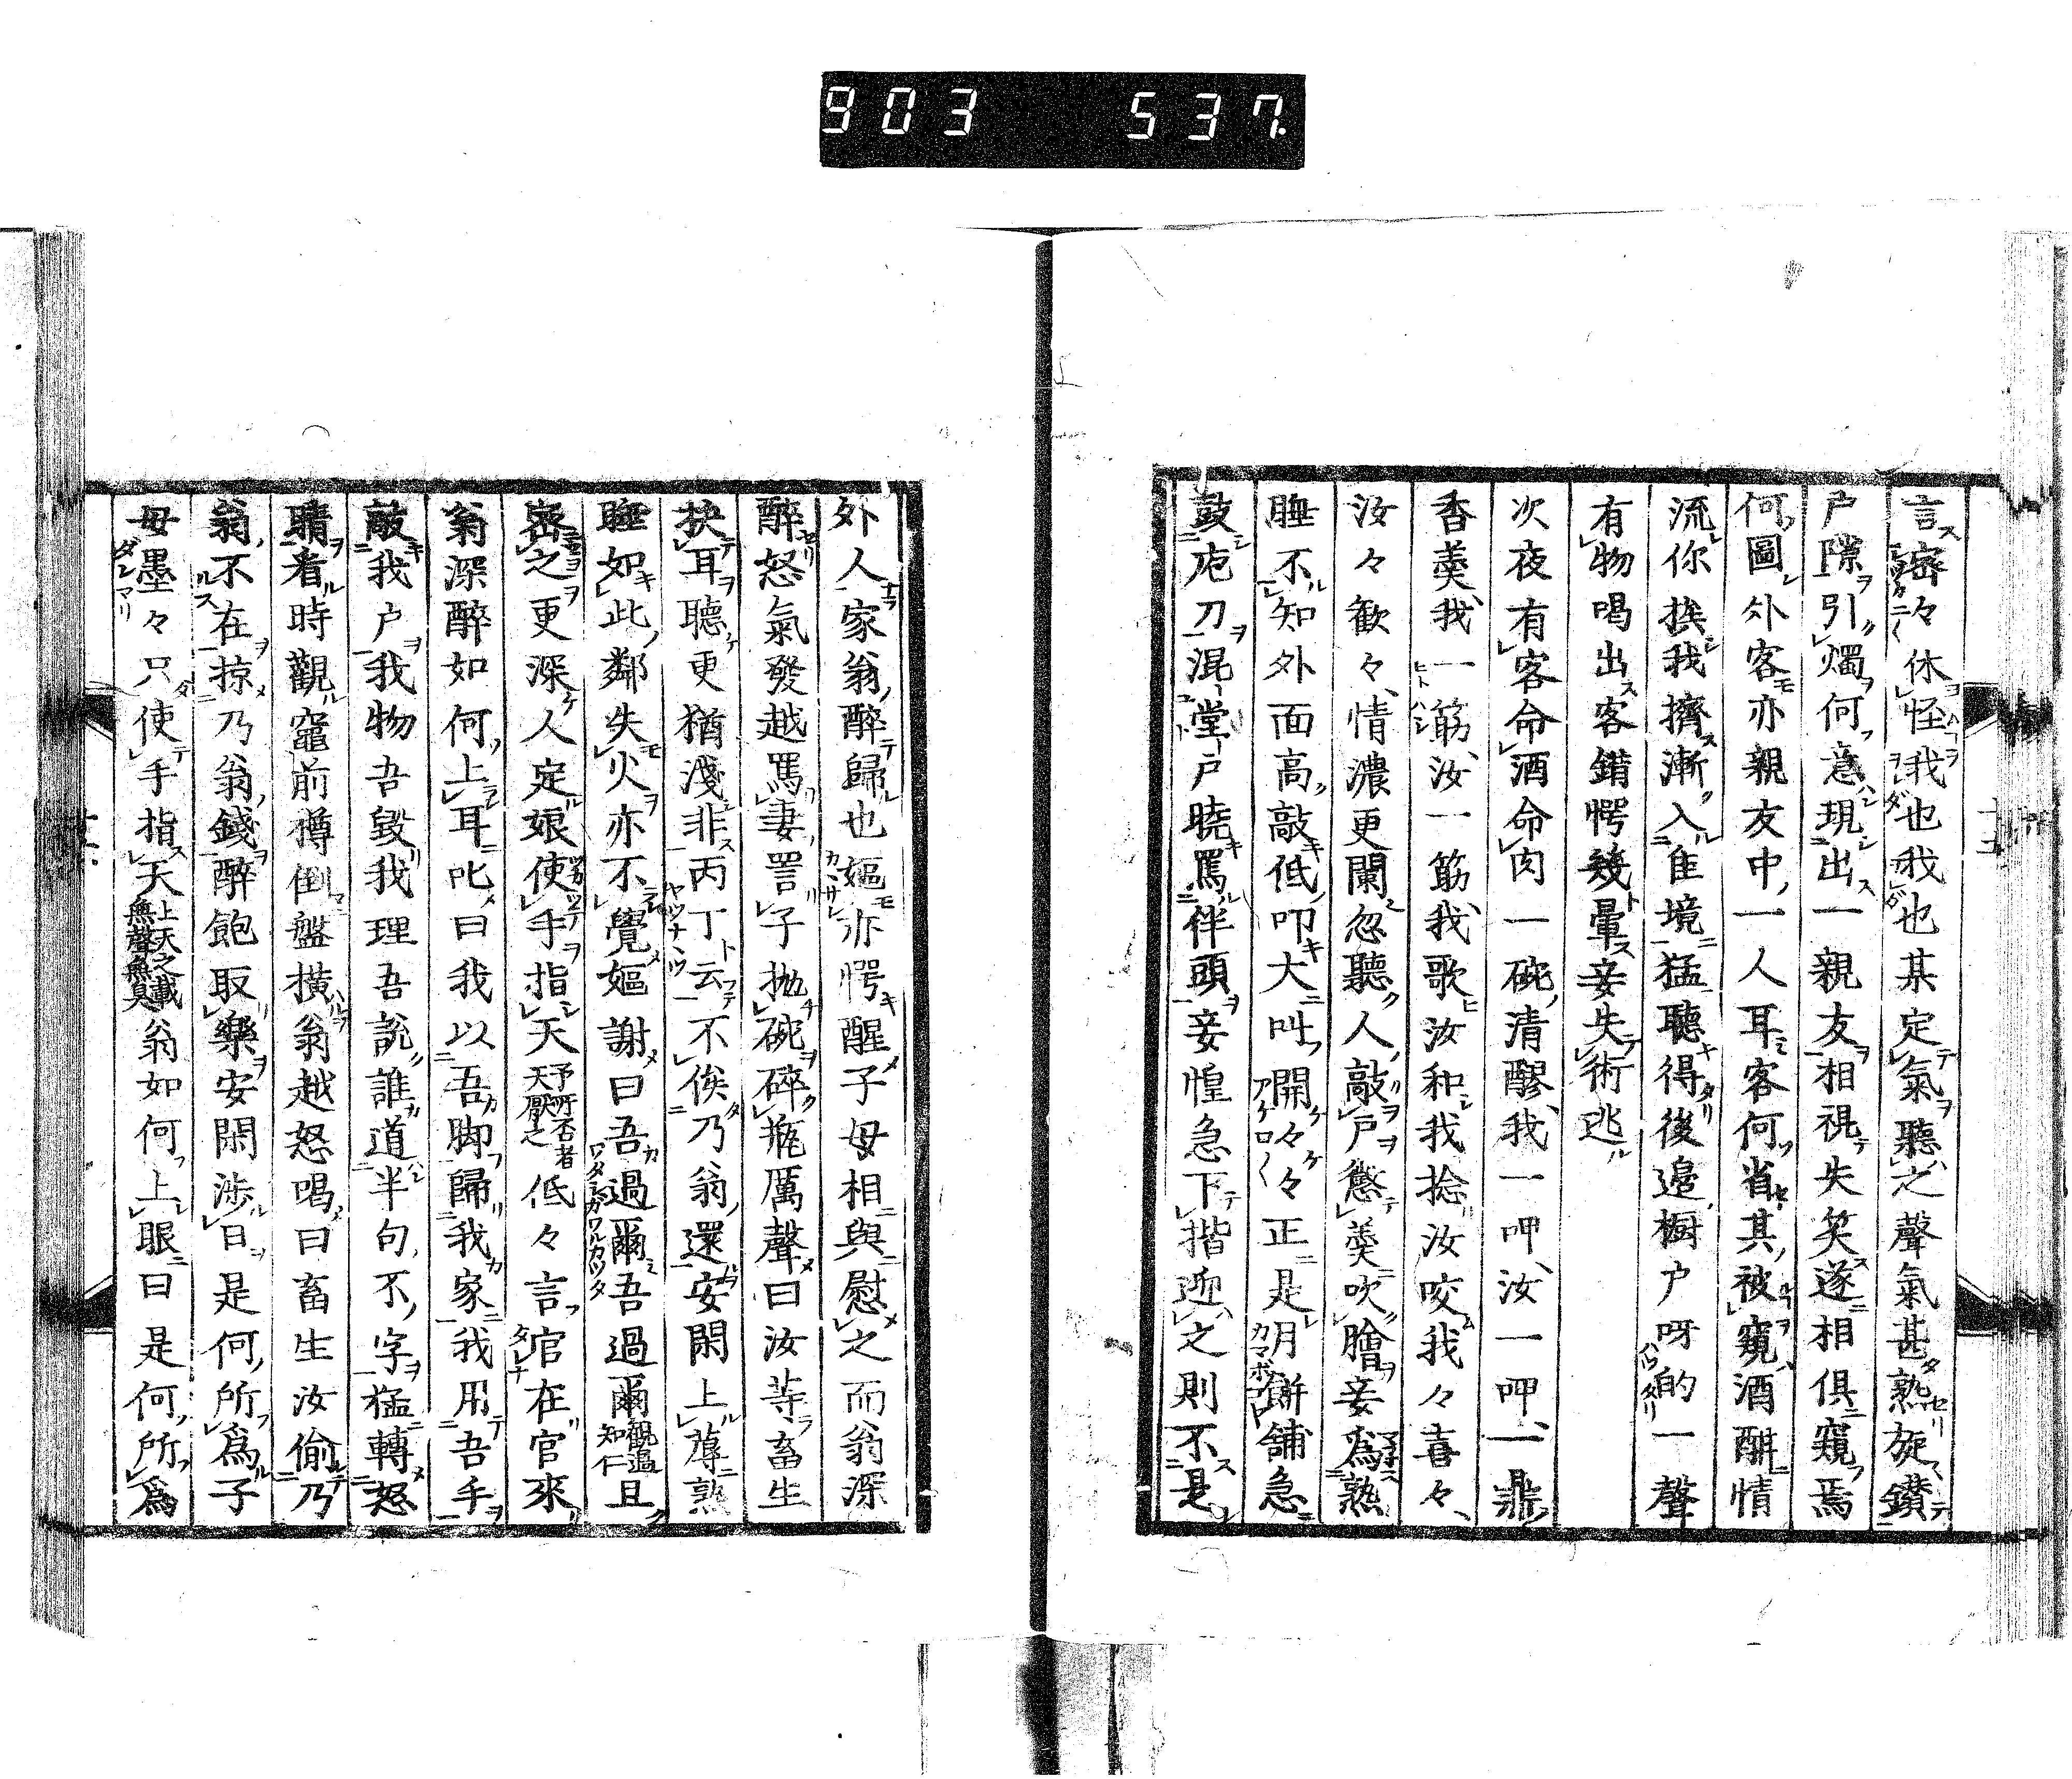 903 537
言密々休怪我也我也某定氣聽之聲氣甚熟旋鑚
戶隙引燭何意現出一親友相視失笑遂相俱窺焉
何圖外客亦親友中一人耳客何省其被窺酒酣情
流你挨我擠漸入佳境猛聽得後邊橱戶呀的一聲
有物喝出客錯愕幾暈妾失術逃
次夜有客命酒命肉一碗清醪我一呷汝一呷一鼎
香羮我一筯汝一筯我歌汝和我捻汝咬我々喜々
汝々歡々情濃更闌忽聽人敲戶懲羮吹膾妾爲熟
睡不知外面高敲低叩大叫開々々正是月餅舗急
鼓庖刀混堂戶曉罵伴頭妾惶急下揩迎之則不是
外人家翁醉歸也嫗亦愕醒子母相與慰之而翁深
醉怒氣發越罵妻詈子拋碗碎瓶厲聲曰汝等畜生
抉耳聽更猶淺非丙丁云不俟乃翁還安閑上蓐熟
睡如此鄰失火亦不覺嫗謝曰吾過爾吾過爾觀過知仁且
密之更深人定娘使手指天予所否者天厭之低々言官在官來
翁深醉如何上耳叱曰我以吾脚歸我家我用吾手
敲我戶我物吾毀我理吾說誰道半句不字猛轉怒
睛看時觀竈前樽倒盤橫翁越怒喝曰畜生汝偷乃
翁不在掠乃翁錢醉飽取樂安閑涉日是何所爲子
母墨々只使手指天上天之載無聲無臭翁如何上眼曰是何所爲